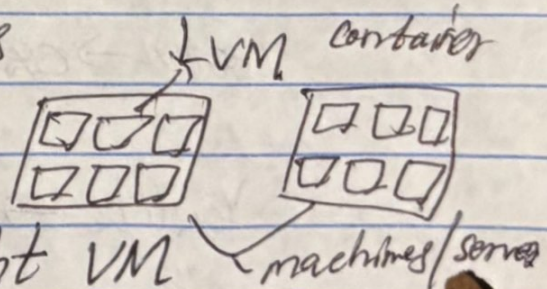 VM container
VM machines/server